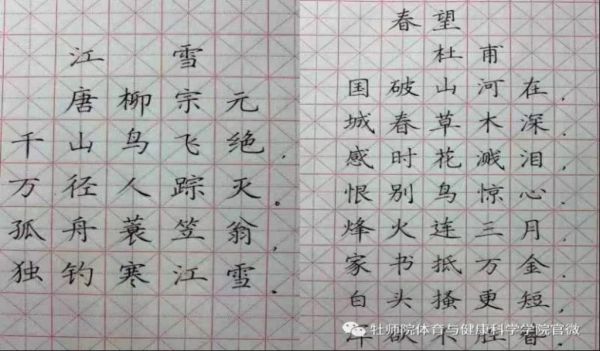 江雪
唐柳宗元
千山鸟飞绝，
万径人踪灭。
孤舟蓑笠翁，
独钓寒江雪。
春望
杜甫
国破山河在，
城春草木深。
感时花溅泪，
恨别鸟惊心。
烽火连三月，
家书抵万金。
白头搔更短，
欲不胜
牡师院体育与健康科学学院官微